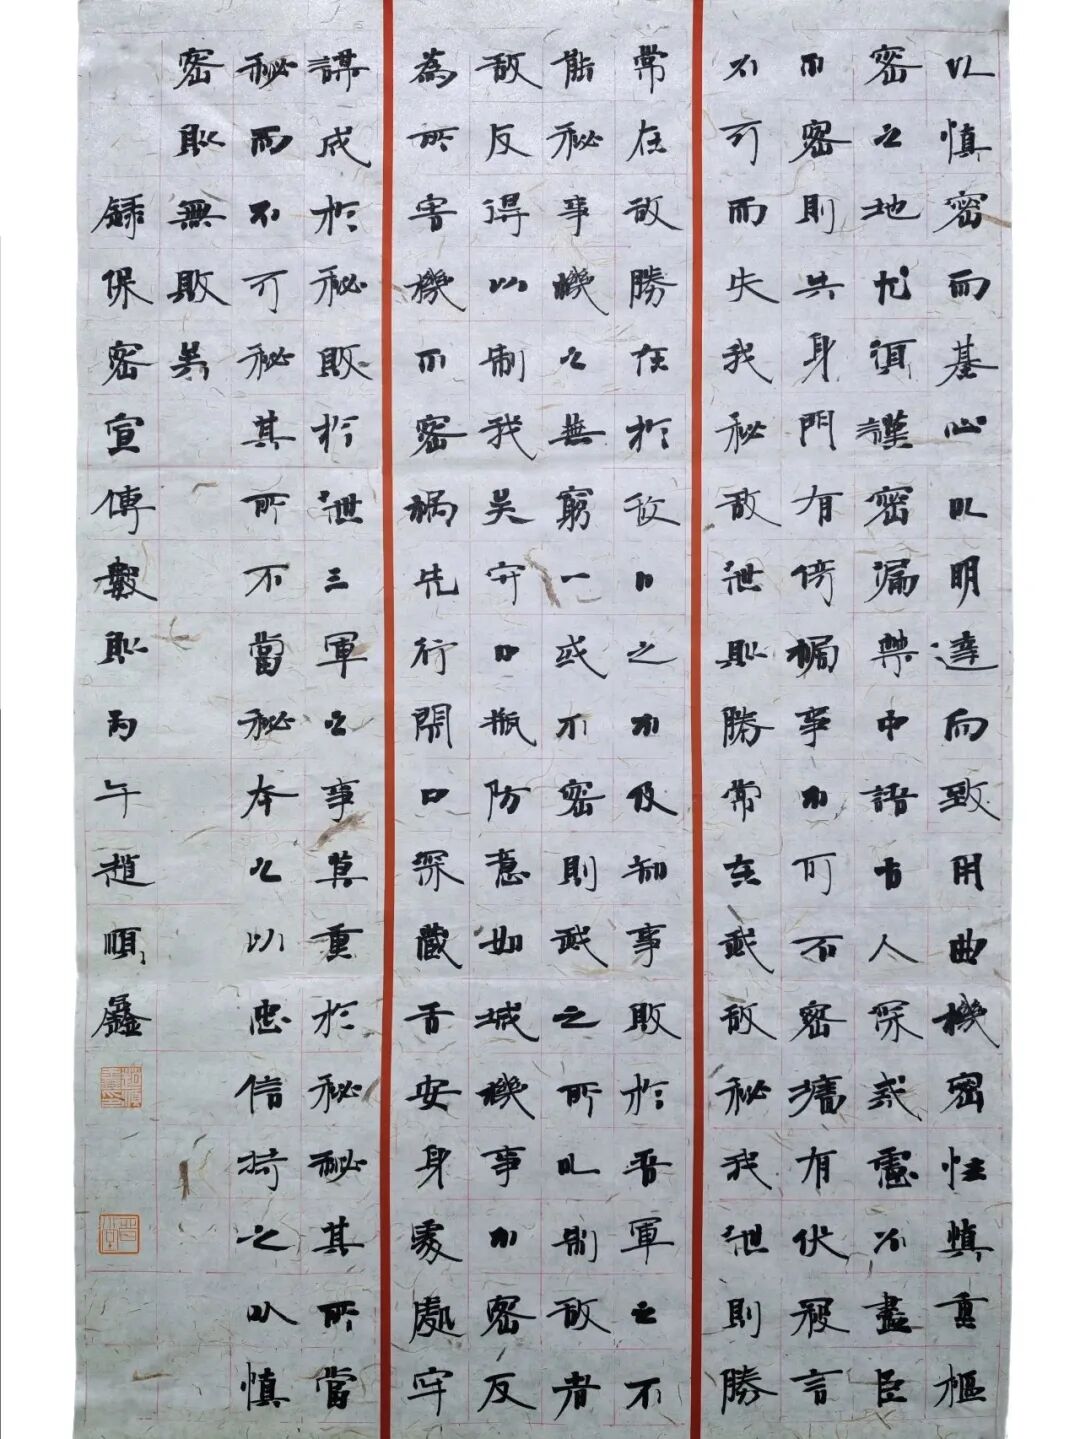 以慎密而基心以明達而致用曲機密性慎重樞
密之地尤須謹密漏禁中語古人深戒慮不盡臣
不密則失身門有倚禍事不可不密牆有伏寇言
不可而失我秘敵泄則勝常在我敵秘我泄則勝
常在敵勝在於敵口之不及知事敗於吾軍之不
能秘事機之無窮一或不密則我之所以制敵者
敵反得以制我矣守口瓶防意如城機事不密反
為所害機不密禍先行閉口深藏舌安身處處牢
謀成於秘敗於泄三軍之事莫重於秘秘其所當
秘而不可秘其所不當秘本之以忠信持之以慎
密則無敗矣
錄保密宣傳數則丙午趙順鑫